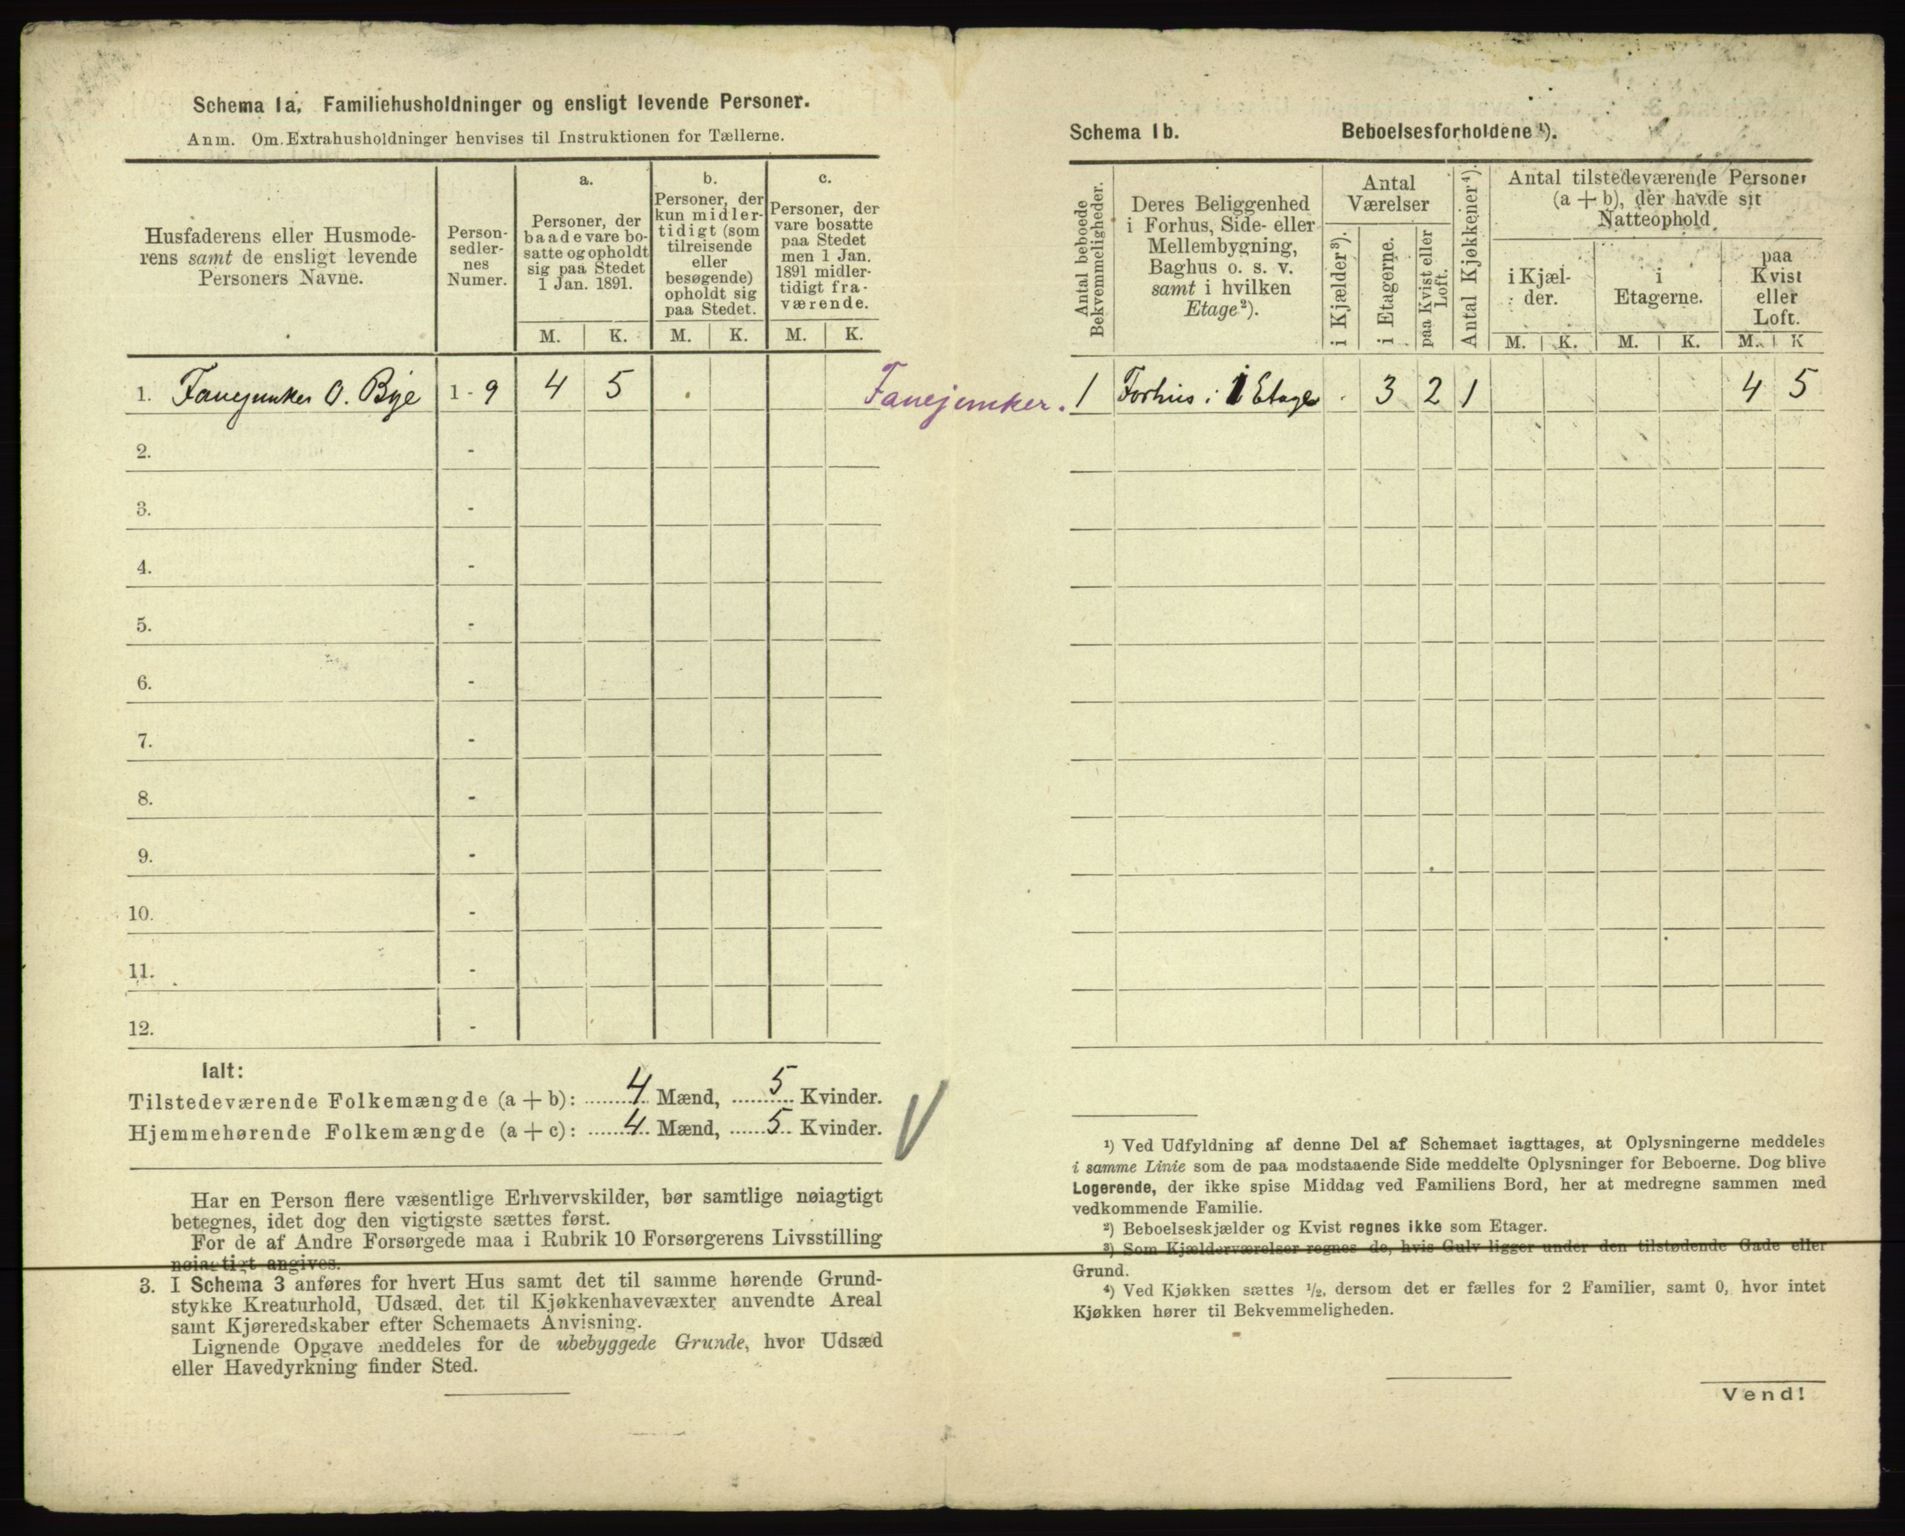 Schema 1a. Familiehusholdninger og ensligt levende Personer.
Anm. Om Extrahusholdninger henvises til Instruktionen for Tællerne.
Husfaderens eller Husmode-
rens samt de ensligt levende
Personers Navne.
Person-
sedler-
nes
Numer.
a.
Personer, der
baade vare bo-
satte og opholdt
sig paa Stedet
1 Jan. 1891.
b.
Personer, der
kun midler-
tidigt (som
tilreisende
eller
besøgende)
opholdt sig
paa Stedet.
c.
Personer, der
vare bosatte
paa Stedet
men 1 Jan.
1891 midler-
tidigt fra-
værende.
M. K. M. K. M. K.
1. Fanejunker O. Bye 1 - 9 4 5
2. -
3. -
4. -
5. -
6. -
7. -
8. -
9. -
10. -
11. -
12. -
Ialt:
Tilstedeværende Folkemængde (a + b): 4 Mænd, 5 Kvinder.
Hjemmehørende Folkemængde (a + c): 4 Mænd, 5 Kvinder.
Har en Person flere væsentlige Erhvervskilder, bør samtlige nøiagtigt
betegnes, idet dog den vigtigste sættes først.
For de af Andre Forsørgede maa i Rubrik 10 Forsørgerens Livsstilling
nøiagtigt angives.
3. I Schema 3 anføres for hvert Hus samt det til samme hørende Grund-
stykke Kreaturhold, Udsæd, det til Kjøkkenhavevæxter anvendte Areal
samt Kjøreredskaber efter Schemaets Anvisning.
Lignende Opgave meddeles for de ubebyggede Grunde, hvor Udsæd
eller Havedyrkning finder Sted.
Schema 1b. Beboelsesforholdene ¹).
Antal beboede
Bekvemmeligheder.
Deres Beliggenhed
i Forhus, Side- eller
Mellembygning,
Baghus o. s. v.
samt i hvilken
Etage²).
Antal
Værelser
i Kjælder³).
i Etagerne.
paa Kvist eller
Loft.
Antal Kjøkkener⁴).
Antal tilstedeværende Personer
(a + b), der havde sit
Natteophold
i Kjæl-
der.
i
Etagerne.
paa
Kvist
eller
Loft.
M. K. M. K. M. K
Fanejunker. 1 Forhus i 1 Etage . 3 2 1 4 5
¹) Ved Udfyldning af denne Del af Schemaet iagttages, at Oplysningerne meddeles
i samme Linie som de paa modstaaende Side meddelte Oplysninger for Beboerne. Dog blive
Logerende, der ikke spise Middag ved Familiens Bord, her at medregne sammen med
vedkommende Familie.
²) Beboelseskjælder og Kvist regnes ikke som Etager.
³) Som Kjælderværelser regnes de, hvis Gulv ligger under den tilstødende Gade eller
Grund.
⁴) Ved Kjøkken sættes ½, dersom det er fælles for 2 Familier, samt 0, hvor intet
Kjøkken hører til Bekvemmeligheden.
Vend!